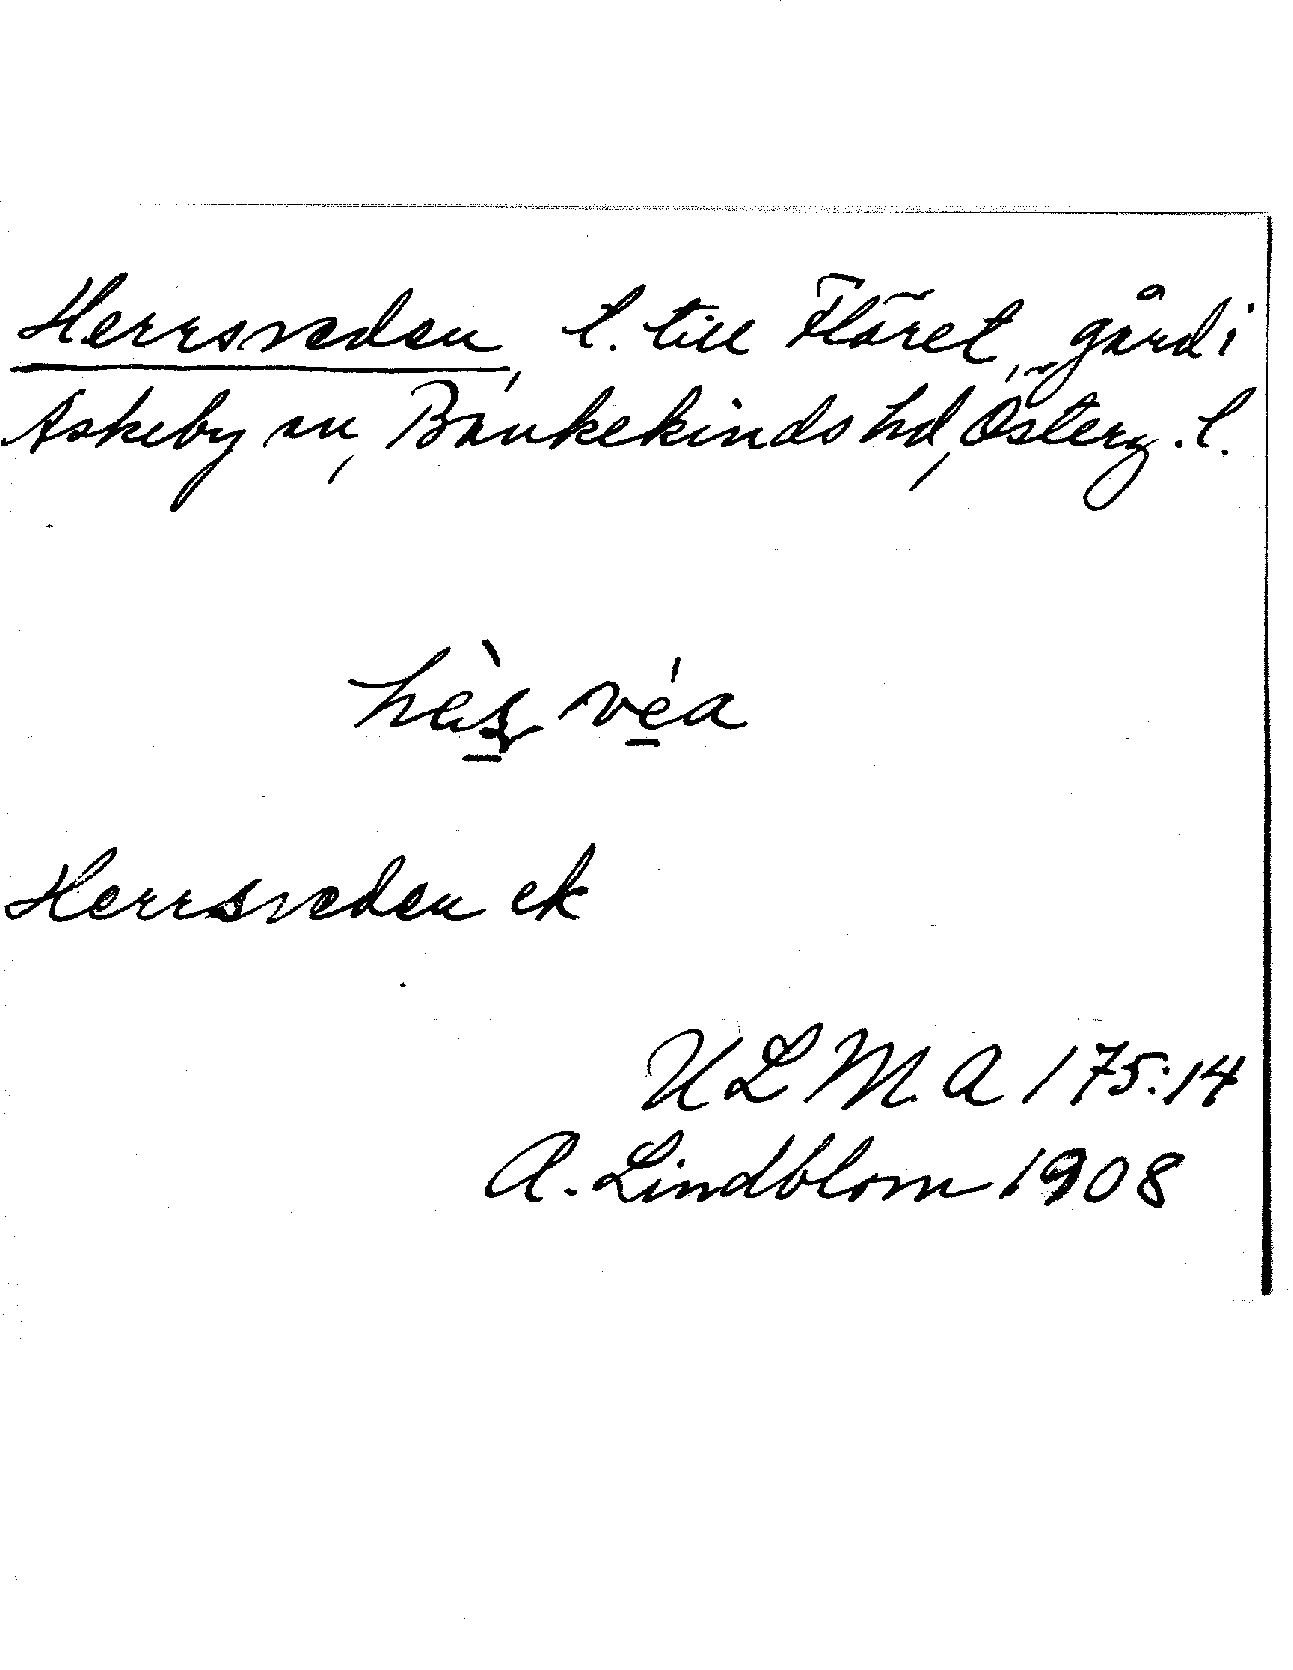 Herrsveden, l. till Flöret, gård i
Askeby sn, Bankekinds hd, Österg. l.
hès̱ véa
Herrsveden ek
ULMA 175:14
A. Lindblom 1908